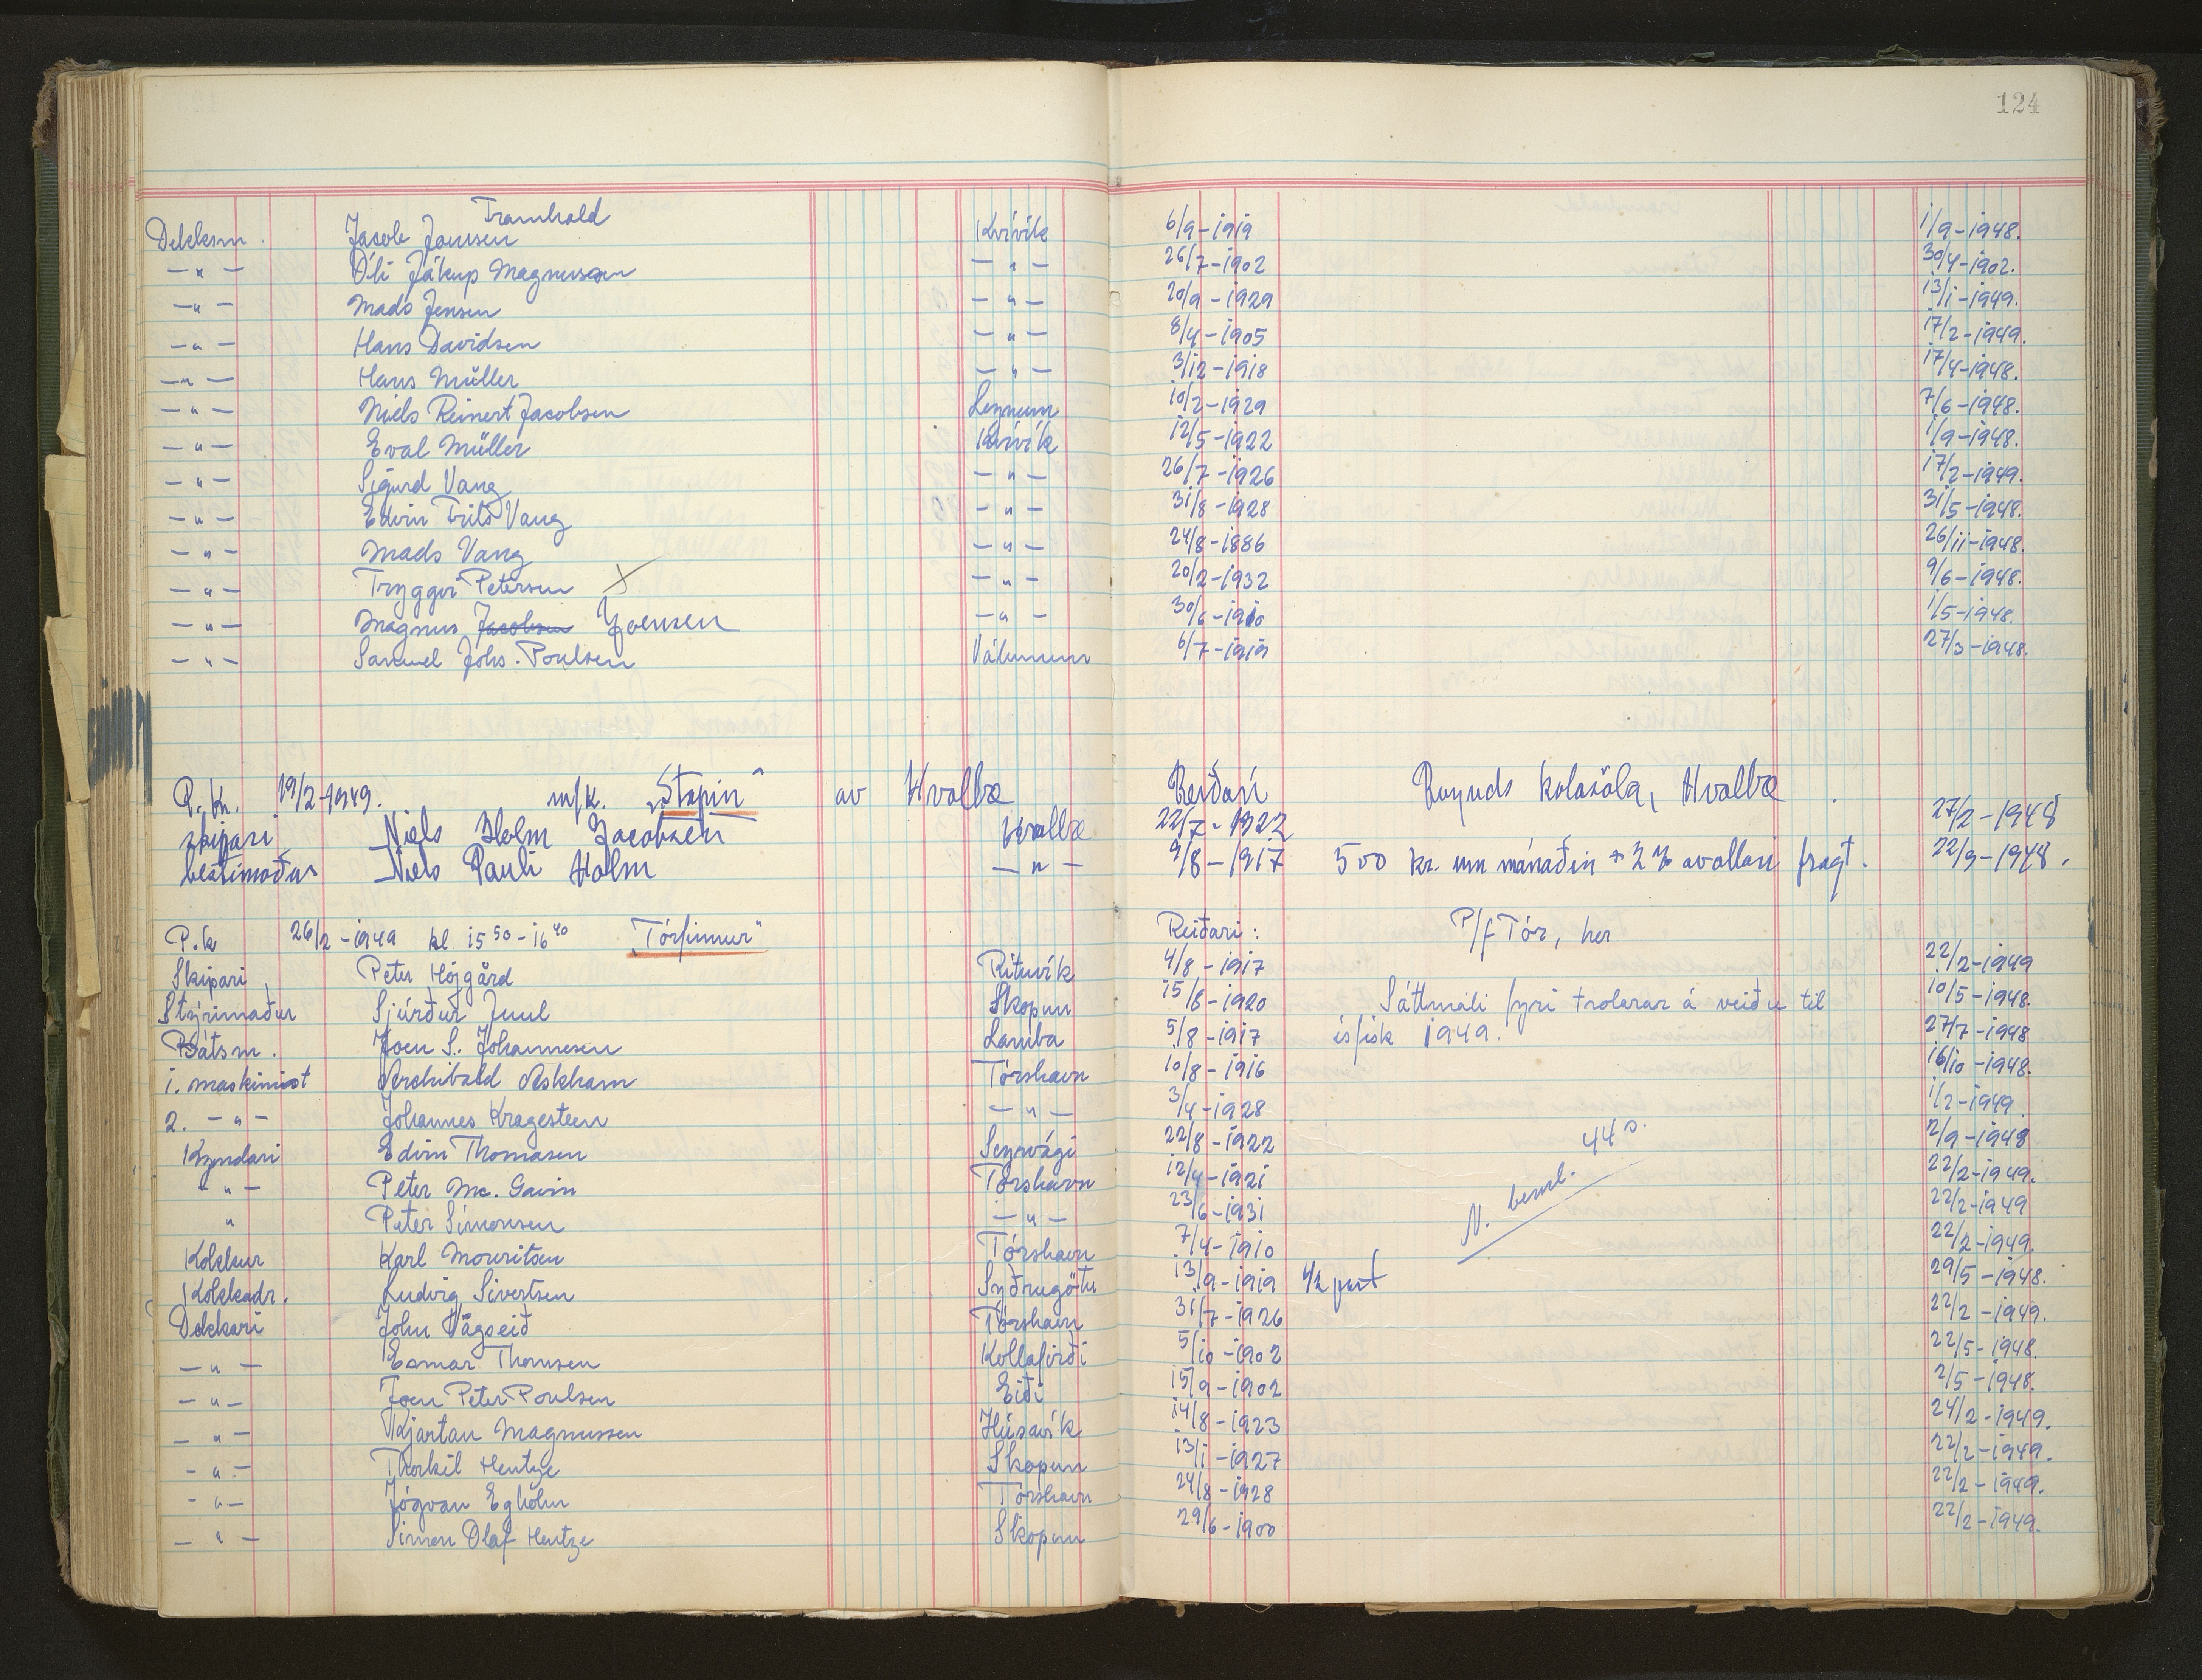 124
Framhald
Dekksm. Jacob Joensen Kvívík 6/9-1919 1/9-1948.
-"- Óli Jákup Magnussen -"- 26/7-1902 30/4-1902.
-"- Mads Jensen -"- 20/9-1929 13/1-1949.
-"- Hans Davidsen -"- 8/4-1905 17/2-1949.
-"- Hans Müller -"- 3/12-1918 17/4-1948.
-"- Niels Reinert Jacobsen Leynum 10/2-1929 7/6-1948.
-"- Eval Müller Kvívík 12/5-1922 1/9-1948.
-"- Sigurd Vang -"- 26/7-1926 17/2-1949.
-"- Edvin Frits Vang -"- 31/8-1928 31/5-1948.
-"- Mads Vang -"- 24/8-1886 26/11-1948.
-"- Tryggvi Petersen X -"- 20/2-1932 9/6-1948.
-"- Magnus Jacobsen Joensen -"- 30/6-1910 1/5-1948.
-"- Samuel Johs. Poulsen Válinum 6/7-1919 27/3-1948.
P. Kr. 19/2-1949. m/k. "Stapin" av Hvalba Reiðarí Kolasöla, Hvalba
skipari Niels Holm Jacobsen Hvalba 22/7-1922 27/2-1948
bestimaður Niels Pauli Holm -"- 9/8-1917 500 kr. um mánaðin + 2% av allari fragt. 22/9-1948.
P.k 26/2-1949 kl. 15 50 - 16 40 "Tórfinnur" Reiðari: P/f Tór, her
Skipari Peter Højgård Rituvík 4/8-1917 22/2-1949
Stýrimaður Sjúrður Juul Skopun 15/8-1920 Sáttmáli fyri trolarar á veiðu til 10/5-1948.
Bátsm. Joen S. Johannesen Lamba 5/8-1917 ísfisk 1949. 27/7-1948
1. maskinist Archibald Askham Tórshavn 10/8-1916 16/10-1948.
2. -"- Johannes Kragesteen -"- 3/4-1928 1/2-1949.
Kyndari Edvin Thomasen Sørvági 22/8-1922 44 s. 2/9-1948
-"- Peter Mc. Gavin Tórshavn 12/4-1921 22/2-1949.
" Peter Simonsen -"- 23/6-1931 N. beml. 22/2-1949
Kokkur Karl Mouritsen Tórshavn 7/4-1910 22/2-1949.
Kokkadr. Ludvig Sivertsen Syðrugötu 13/9-1919 1/2 part 29/5-1948.
Dekkari John Vágseið Tórshavn 31/7-1926 22/2-1949.
-"- Esmar Thomsen Kollafirði 5/10-1902 22/5-1948.
-"- Joen Peter Poulsen Eiði 15/9-1902 2/5-1948.
-"- Kjartan Magnussen Húsavík 14/8-1923 24/2-1949.
-"- Thorkil Hentze Skopun 13/1-1927 22/2-1949.
-"- Jógvan Egholm Tórshavn 24/8-1928 22/2-1949.
-"- Simon Olaf Hentze Skopun 29/6-1900 22/2-1949.